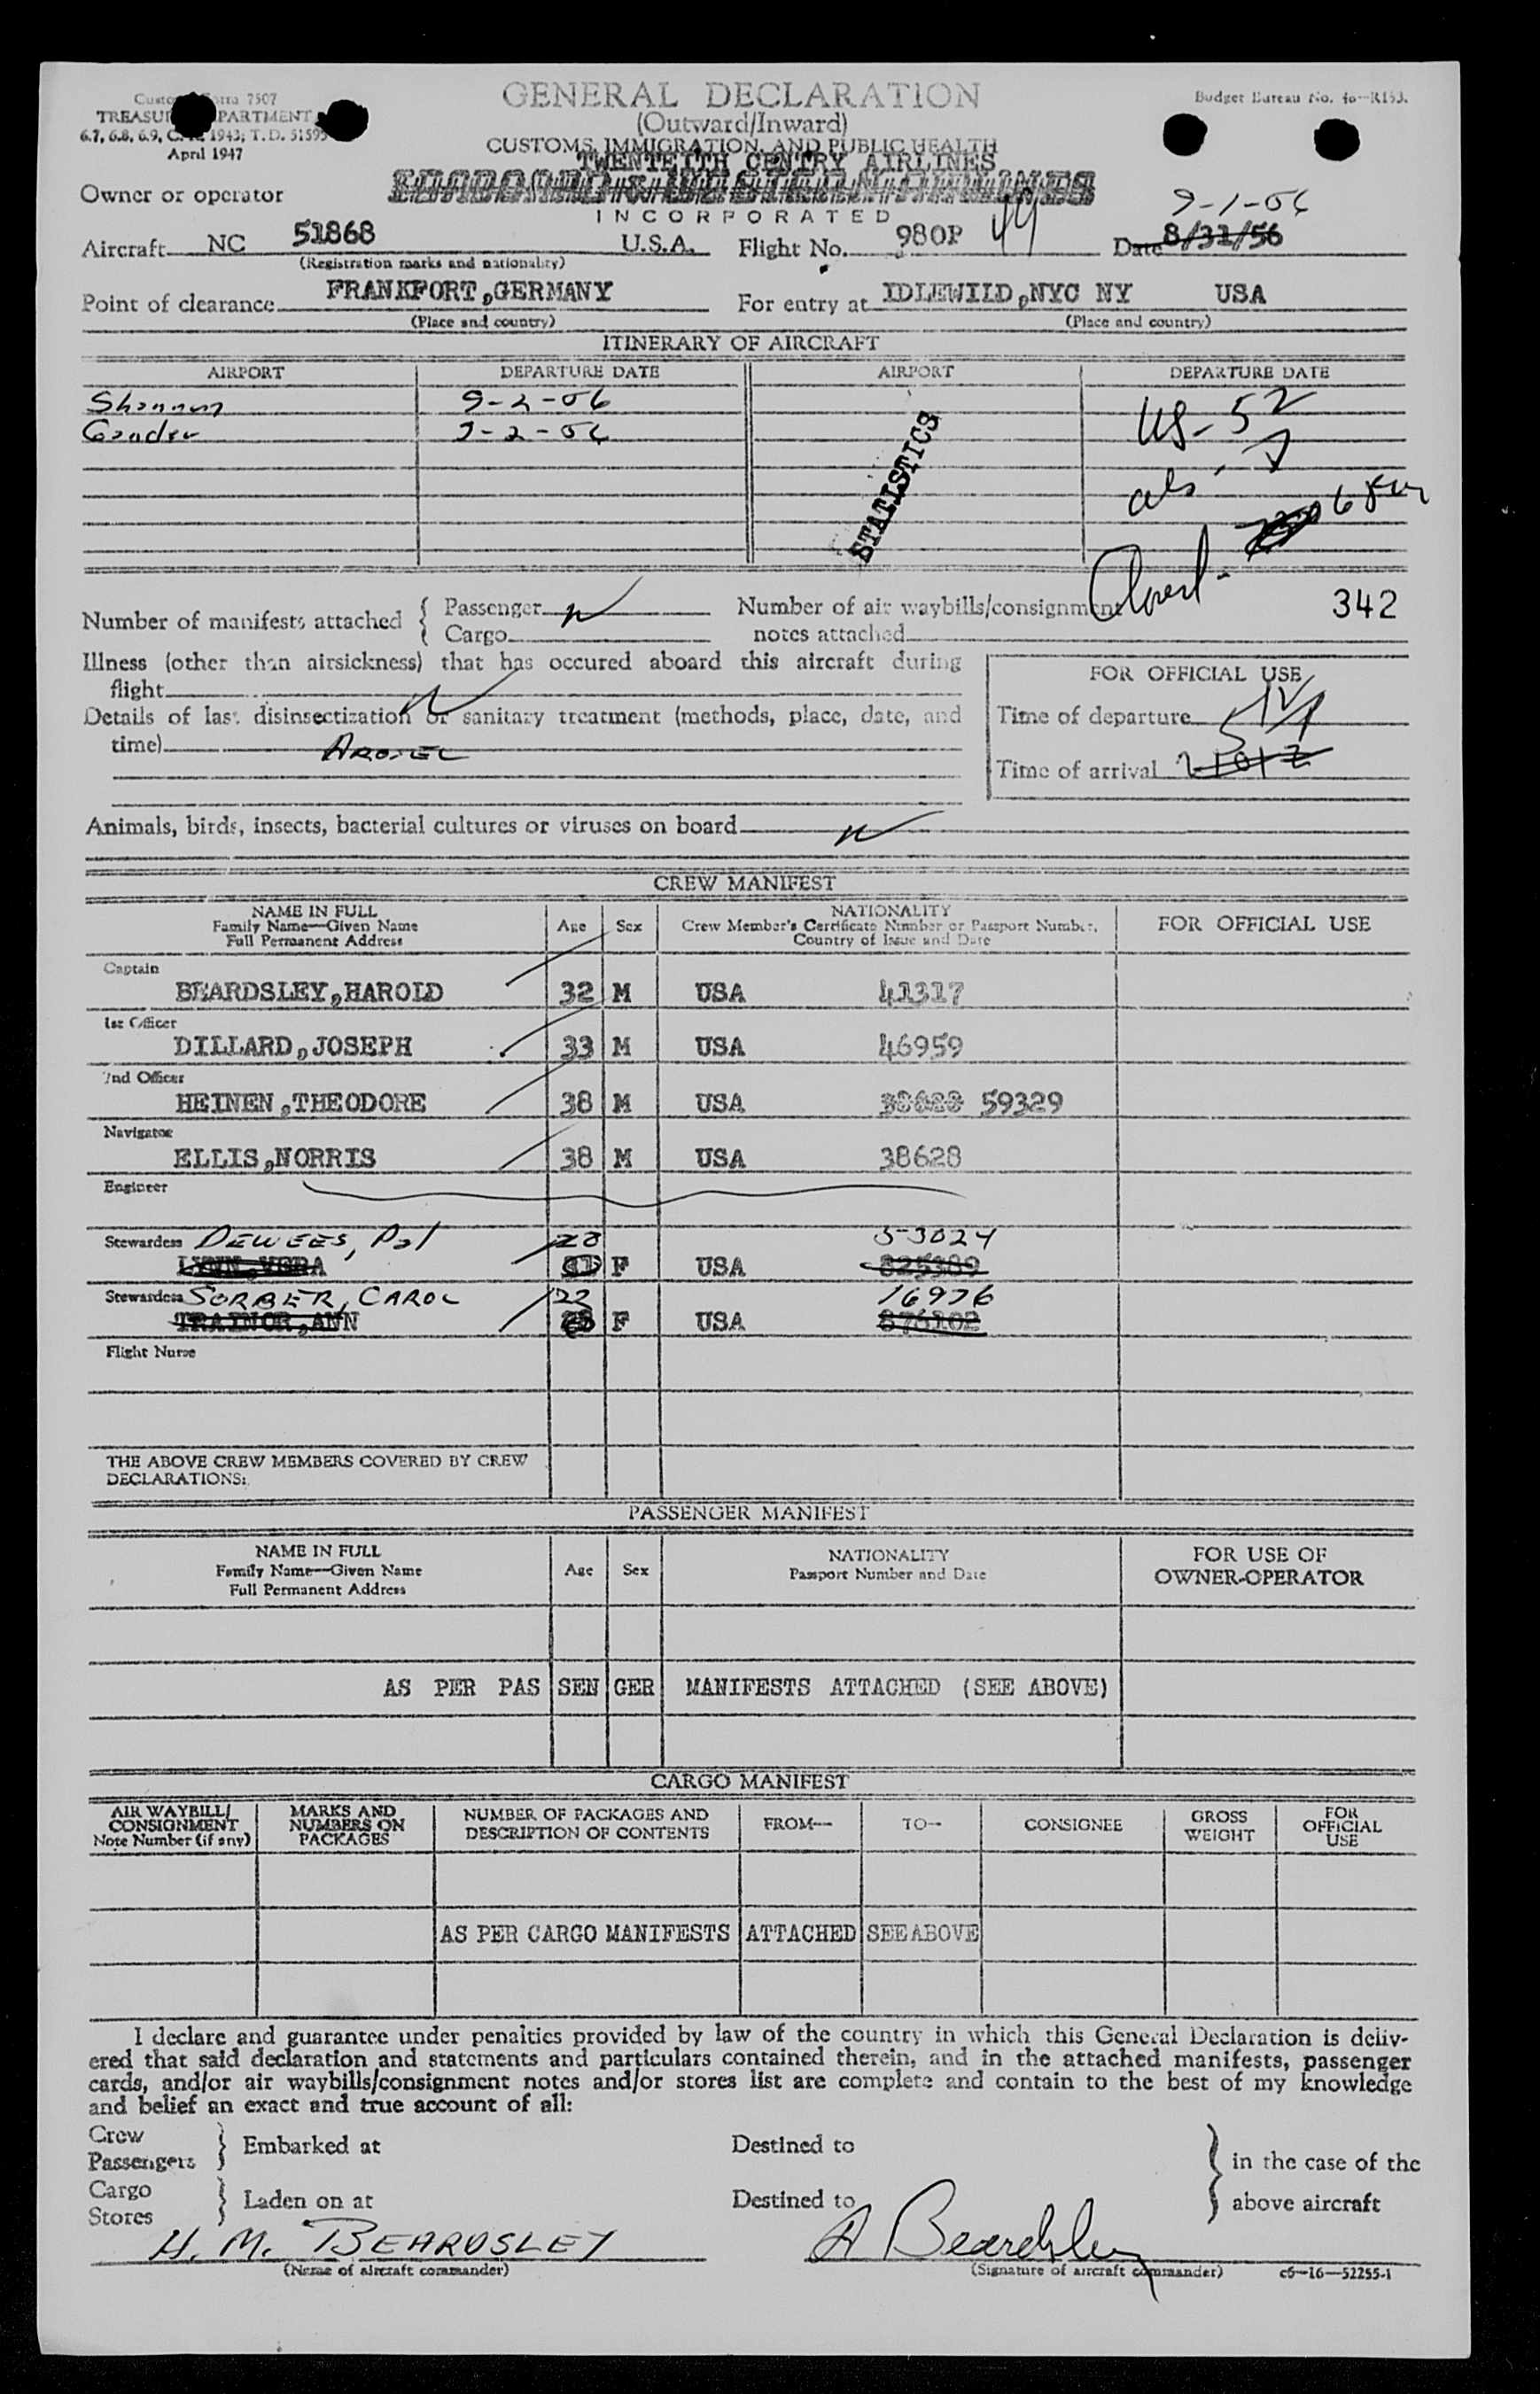 GENERAL DECLARATION
(Outward/Inward)
CUSTOMS, IMMIGRATION, AND PUBLIC HEALTH
Form 7507
6.7, 6.8, 6.9, 1943; T.D. 51595
April 1947
Budget Bureau No. 46—R153.
TWENTEITH CENTRY AIRLINES
Owner or operator
INCORPORATED
9-1-56
Aircraft NC 51868 U.S.A. Flight No. 980P 49 Date 8/31/56
(Registration marks and nationality)
Point of clearance FRANKFORT,GERMANY For entry at IDLEWILD,NYC NY USA
(Place and country) (Place and country)
ITINERARY OF AIRCRAFT
AIRPORT DEPARTURE DATE AIRPORT DEPARTURE DATE
Shannon 9-2-56
Gander 9-2-56
US-52
als-
STATISTICS
342
Number of manifests attached { Passenger N
Cargo
Number of air waybills/consignment
notes attached
Illness (other than airsickness) that has occured aboard this aircraft during
flight N
Details of last disinsectization or sanitary treatment (methods, place, date, and
time)
FOR OFFICIAL USE
Time of departure
Time of arrival
Animals, birds, insects, bacterial cultures or viruses on board N
CREW MANIFEST
NAME IN FULL
Family Name—Given Name
Full Permanent Address
Age Sex
NATIONALITY
Crew Member's Certificate Number or Passport Number,
Country of Issue and Date
FOR OFFICIAL USE
Captain
BEARDSLEY,HAROLD 32 M USA 41317
1st Officer
DILLARD,JOSEPH 33 M USA 46959
2nd Officer
HEINEN,THEODORE 38 M USA 38628 59329
Navigator
ELLIS,NORRIS 38 M USA 38628
Engineer
Stewardess DEWEES, Pat 28 53024
LYNN,VERA F USA 825389
Stewardess SORBER, CAROL 22 16976
TRAINOR,ANN F USA 876102
Flight Nurse
THE ABOVE CREW MEMBERS COVERED BY CREW
DECLARATIONS:
PASSENGER MANIFEST
NAME IN FULL
Family Name—Given Name
Full Permanent Address
Age Sex
NATIONALITY
Passport Number and Date
FOR USE OF
OWNER-OPERATOR
AS PER PAS SEN GER MANIFESTS ATTACHED (SEE ABOVE)
CARGO MANIFEST
AIR WAYBILL/
CONSIGNMENT
Note Number (if any)
MARKS AND
NUMBERS ON
PACKAGES
NUMBER OF PACKAGES AND
DESCRIPTION OF CONTENTS
FROM—
TO—
CONSIGNEE
GROSS
WEIGHT
FOR
OFFICIAL
USE
AS PER CARGO MANIFESTS ATTACHED SEE ABOVE
I declare and guarantee under penalties provided by law of the country in which this General Declaration is deliv-
ered that said declaration and statements and particulars contained therein, and in the attached manifests, passenger
cards, and/or air waybills/consignment notes and/or stores list are complete and contain to the best of my knowledge
and belief an exact and true account of all:
Crew
Passengers } Embarked at Destined to
Cargo
Stores } Laden on at Destined to
} in the case of the
above aircraft
H. M. BEARDSLEY H Beardsley
(Name of aircraft commander) (Signature of aircraft commander) c6—16—52255-1